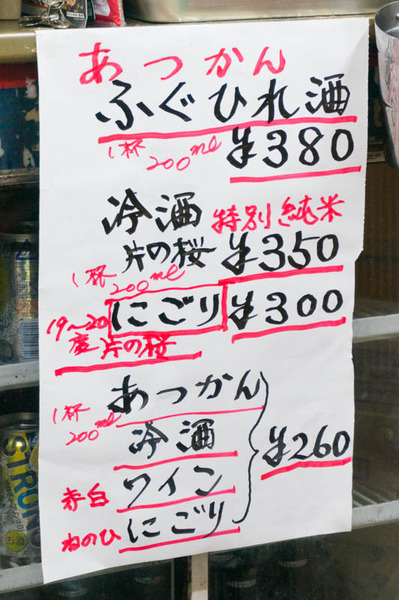 あつかん
ふぐひれ酒
1杯 200ml ¥380
冷酒 特別純米
片の桜 ¥350
1杯 200ml
にごり ¥300
19〜20度 片の桜
あつかん
1杯 200ml
冷酒
¥260
赤白 ワイン
ねのひ にごり
STRONG